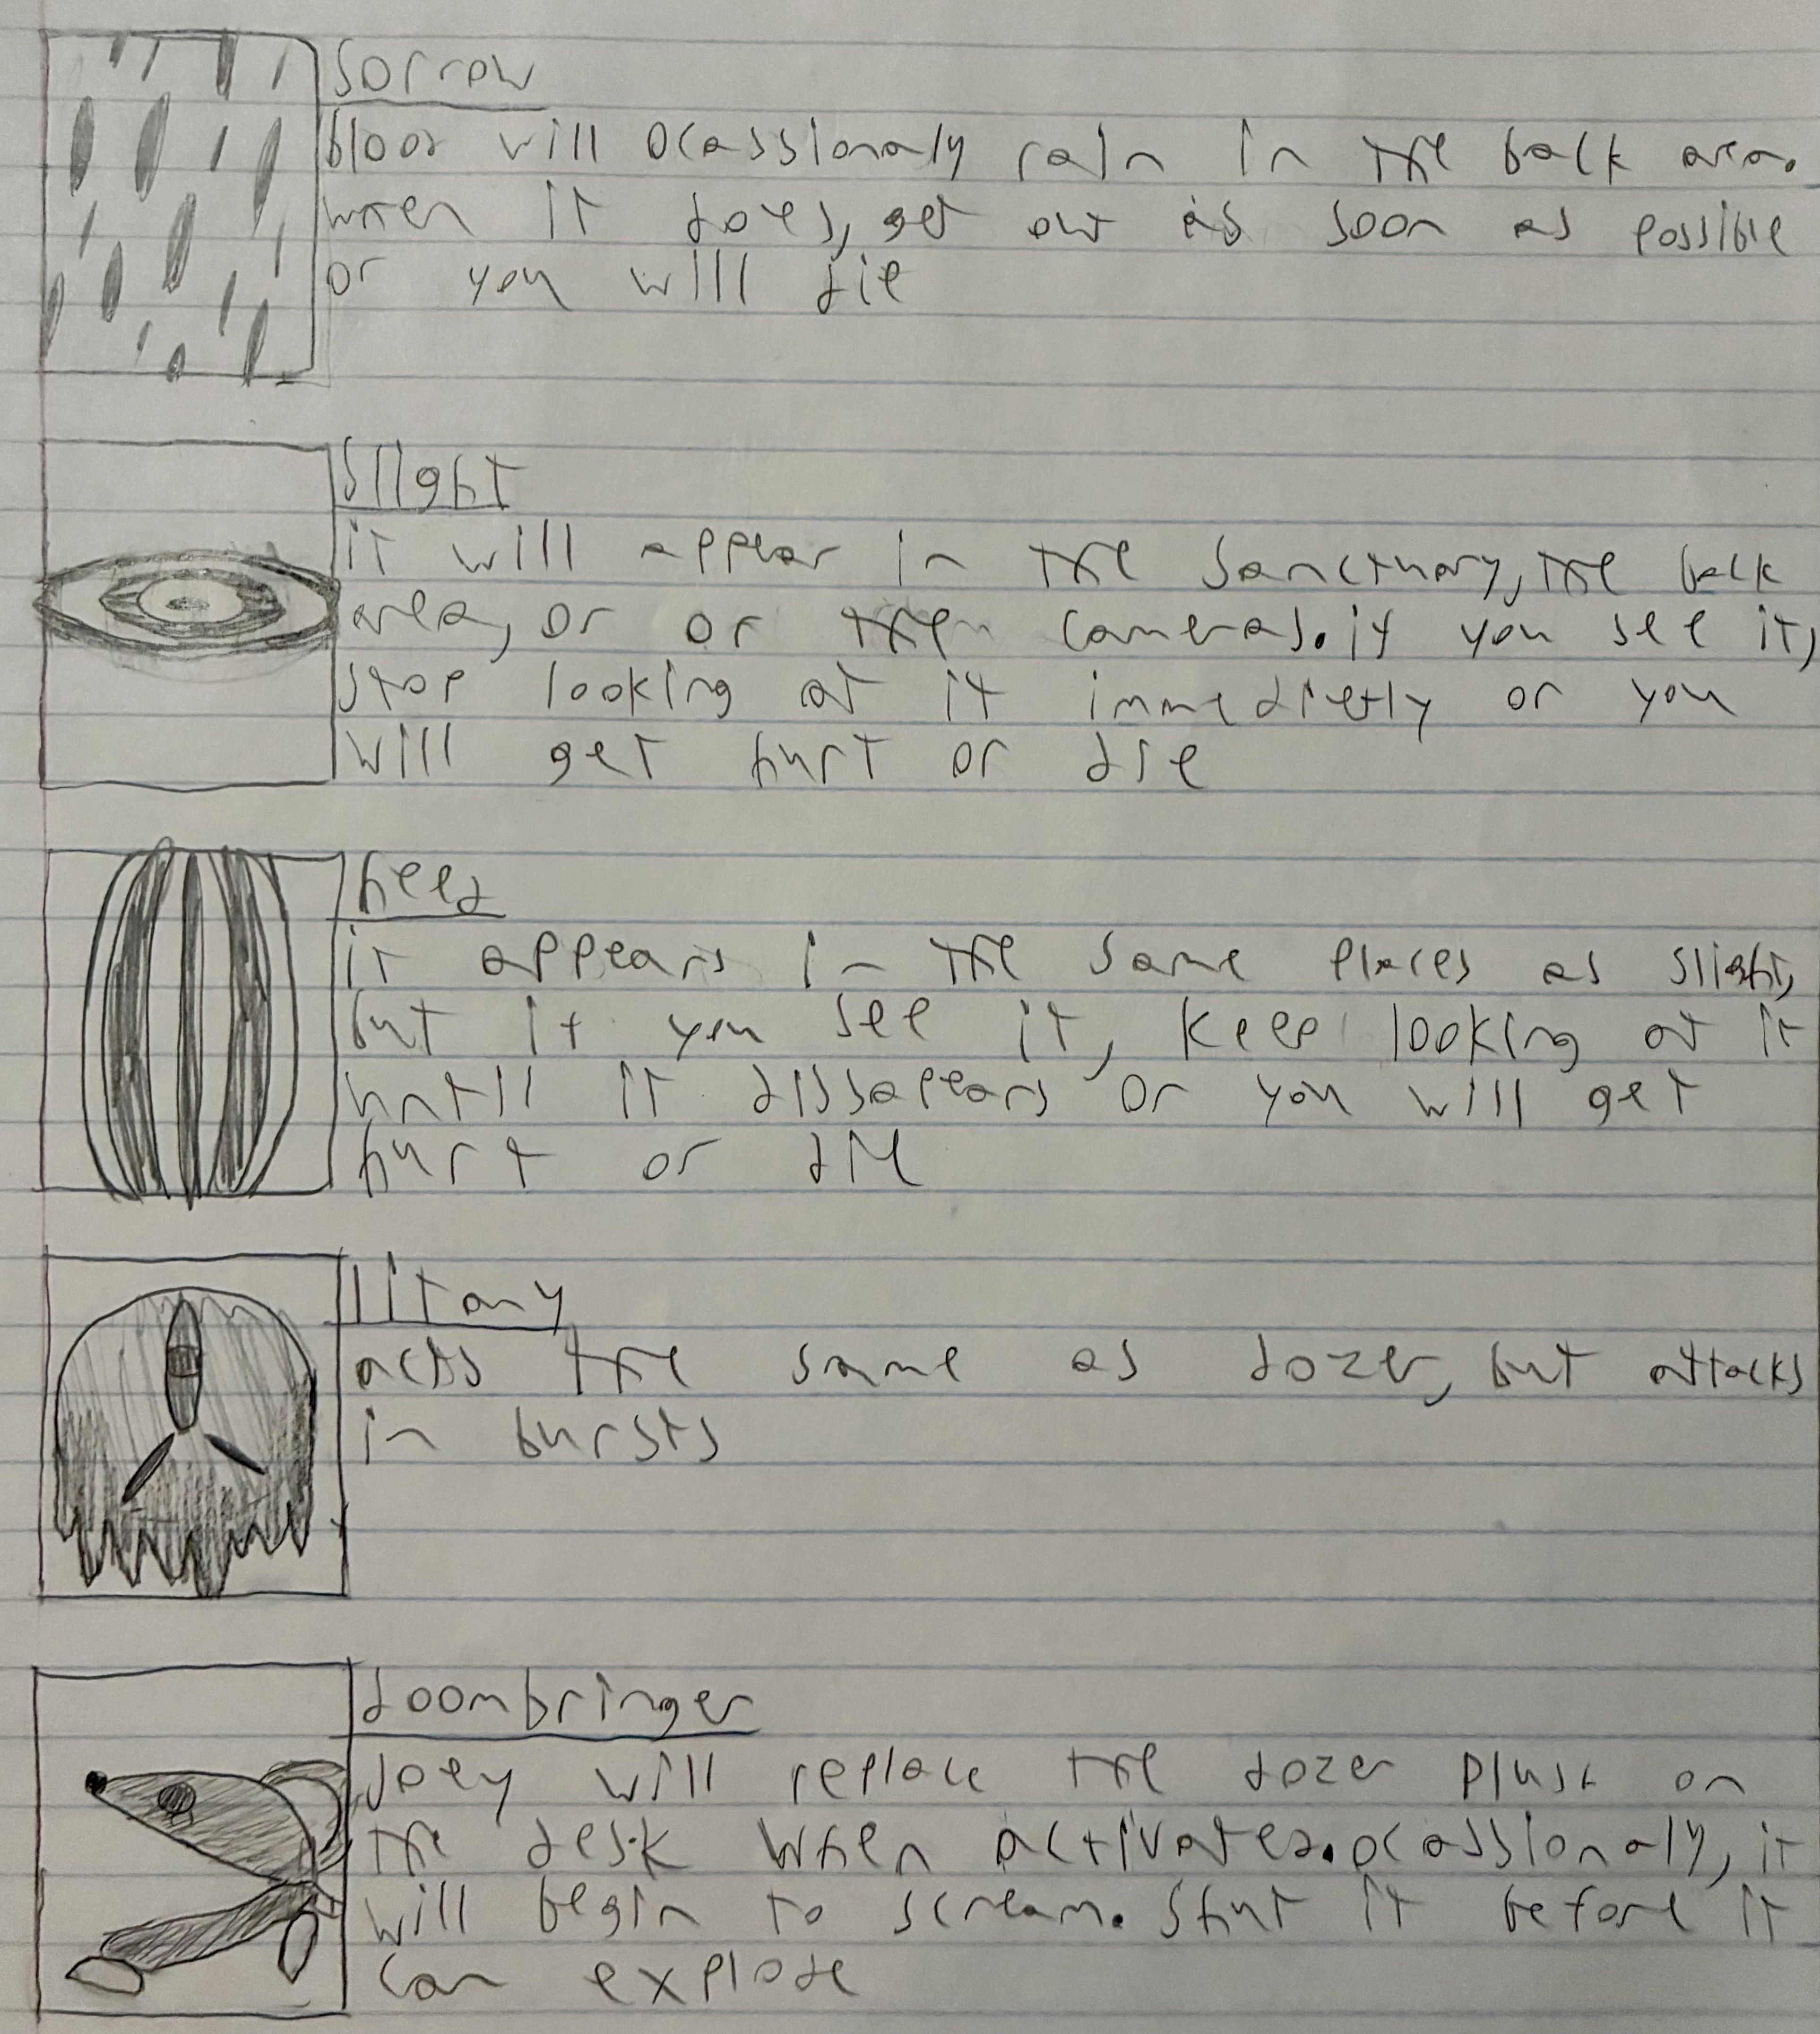 sorrow
blood will ocassionaly rain in the back area.
when it does, get out as soon as possible
or you will die
slight
it will appear in the sanctuary, the back
area, or or then cameras. if you see it,
stop looking at it immedietly or you
will get hurt or die
heed
it appears in the same places as slight,
but if you see it, keep looking at it
until it dissapears or you will get
hurt or die
litany
acts the same as dozer, but attacks
in bursts
doombringer
joey will replace the dozer plush on
the desk when activated. ocassionaly, it
will begin to scream. Shut it before it
can explode